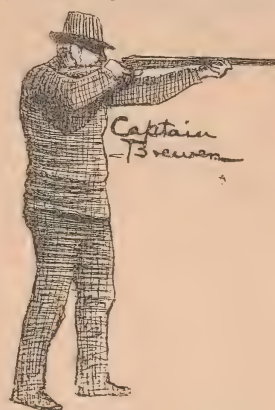 Captain
Brewer